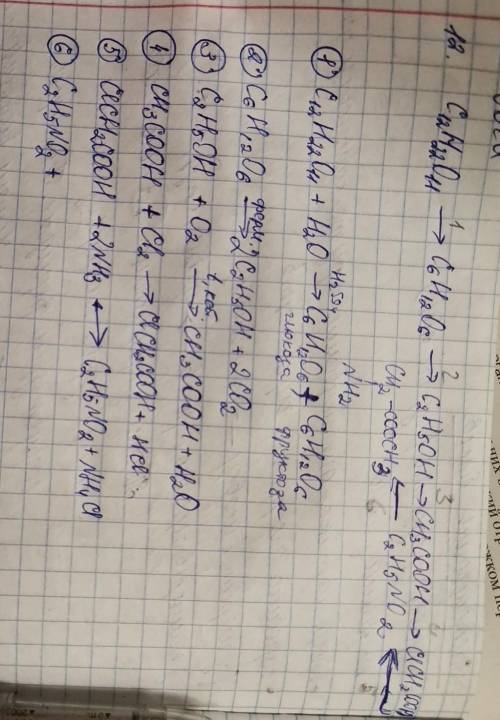 12. C12H22O11 →1 C6H12O6 →2 C2H5OH →3 CH3COOH → ClCH2COOH
CH2-COOCH3 ← C2H5NO2 ←
NH2
① C12H22O11 + H2O →H2SO4 C6H12O6 + C6H12O6
глюкоза фруктоза
② C6H12O6 →ферм. 2C2H5OH + 2CO2
③ C2H5OH + O2 →t, кат. CH3COOH + H2O
④ CH3COOH + Cl2 → ClCH2COOH + HCl
⑤ ClCH2COOH + 2NH3 ↔ C2H5NO2 + NH4Cl
⑥ C2H5NO2 +